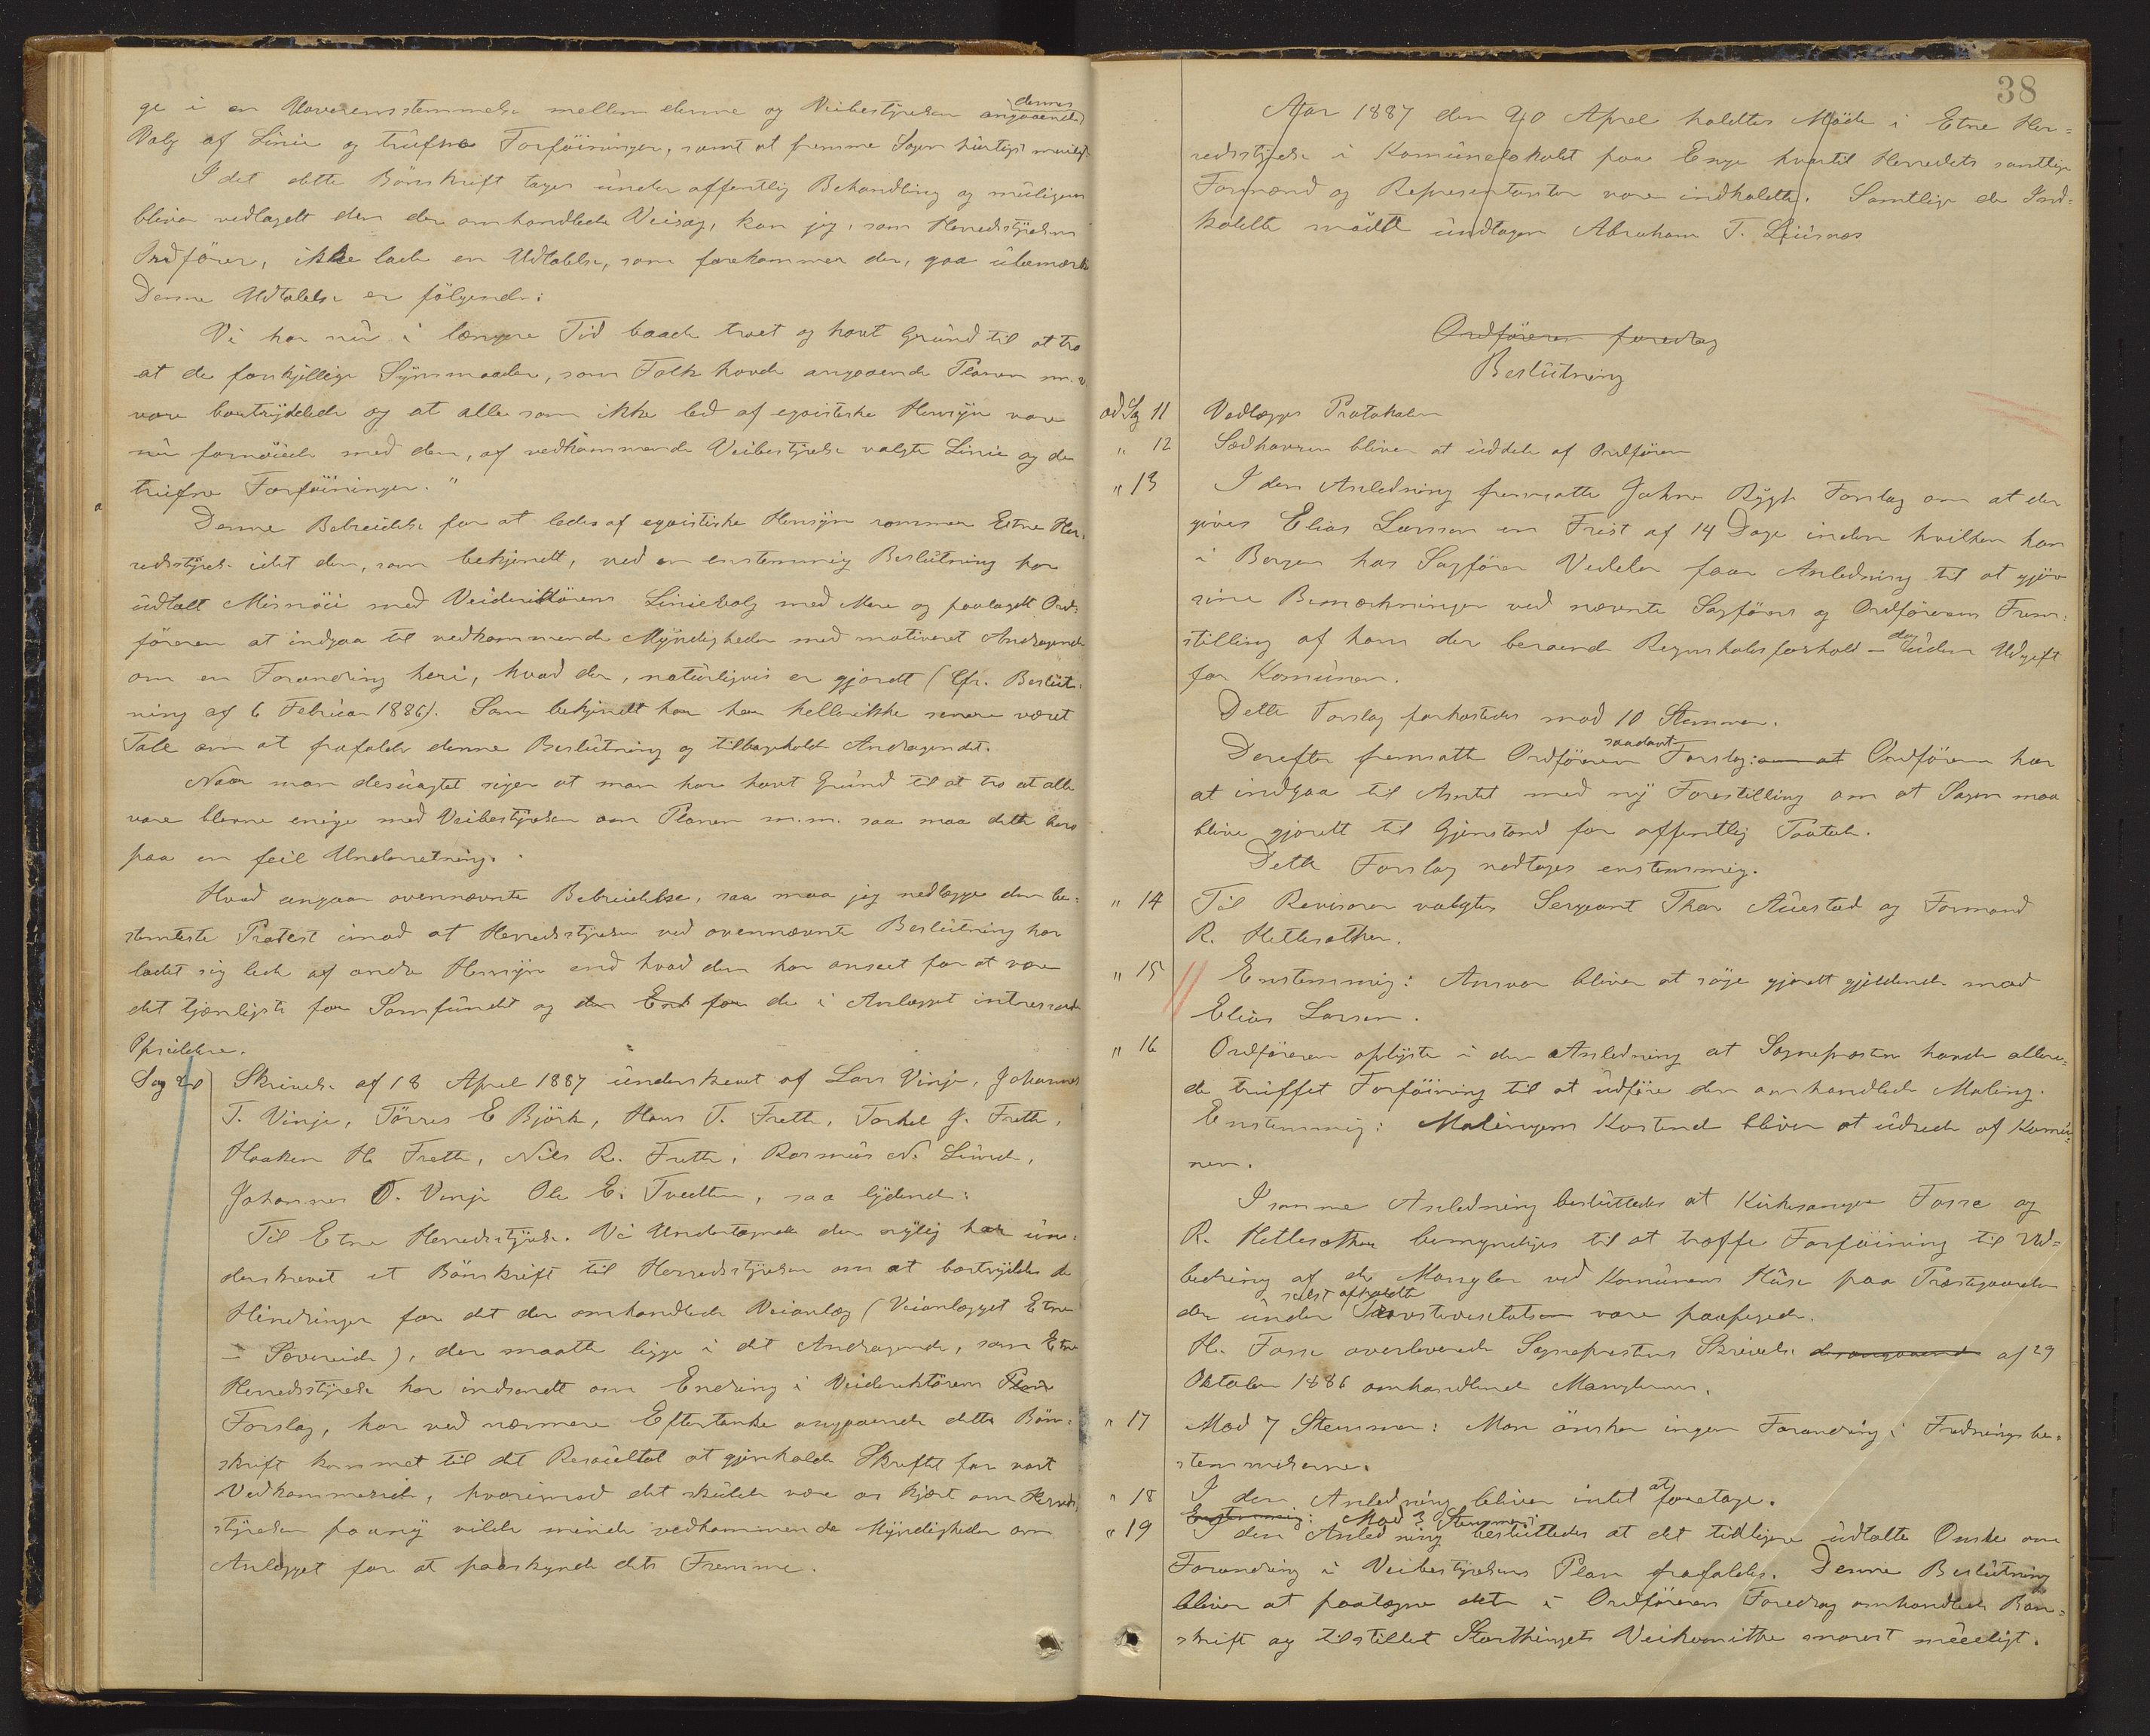 ge i en Uoverensstemmelse mellem denne og Veibestyrelsen angaaende dennes
Valg af Linie og trufne Forføininger, samt at fremme Sagen hurtigst muligt.
Idet dette Bønskrift tages under offentlig Behandling og muligens
bliver vedlagdt den der omhandlede Veisag, kan jeg, som Herredsstyrelsens
Ordfører, ikke lade en Udtalelse, som forekommer der, gaa ubemærket
Denne Udtalelse er følgende:
Vi har nu i længere Tid baade troet og havt Grund til at tro
at de forskjellige Synsmaader, som Folk havde angaaende Planen m.v.
vare bortryddede og at alle som ikke led af egoistiske Hensyn vare
nu fornøiede med den, af vedkommende Veibestyrelse valgte Linie og de
trufne Forføininger."
Denne Bebreidelse for at ledes af egoistiske Hensyn rammer Etne Her-
redsstyrelse idet den, som bekjendt, ved en enstemmig Beslutning har
udtalt Misnøie med Veidirektørens Linievalg med Mere og paalagdt Ord-
føreren at indgaa til vedkommende Myndigheder med motiveret Andragende
om en Forandring heri, hvad der, naturligvis er gjordt (Cfr. Beslut-
ning af 6 Februar 1886). Som bekjendt har her hellerikke senere været
Tale om at frafalde denne Beslutning og tilbageholde Andragendet.
Naar man desuagtet siger at man har havt Grund til at tro at alle
vare blevne enige med Veibestyrelsen om Planen m.m. saa maa dette bero
paa en feil Underretning.
Hvad angaar ovennævnte Bebreidelse, saa maa jeg nedlægge den be-
stemteste Protest imod at Herredsstyrelsen ved ovennævnte Beslutning har
ladet sig lede af andre Hensyn end hvad den har anseet for at være
det tjænligste for Samfundet og for de i Anlægget intresserede
Opsiddere.
Sag 20 Skrivelse af 18 April 1887 underskrevet af Lars Vinje, Johannes
T. Vinje, Tørres E Bjørk, Hans T. Frette, Torkel J. Frette,
Haaken H. Frette, Nils R. Frette, Rasmus N. Lunde,
Johannes O. Vinje Ole E. Tvedten, saa lydende:
Til Etne Herredsstyrelse. Vi Undertegnede der nylig har un-
derskrevet et Bønskrift til Herredsstyrelsen om at bortrydde de
Hindringer for det der omhandlede Veianlæg (Veianlægget Etne
- Sævereide), der maatte ligge i det Andragende, som Etne
Herredsstyrelse har indsendt om Endring i Veidirektørens Plan
Forslag, har ved nærmere Eftertanke angaaende dette Bøn-
skrift kommet til det Resultat at gjenkalde Skriftet for vort
Vedkommende, hvorimod det skulde være os kjært om Herreds-
styrelsen paany vilde minde vedkommende Myndigheder om
Anlægget for at paaskynde dets Fremme.
38
Aar 1887 den 20 April holdtes Møde i Etne Her-
redsstyrelse i Komunelokalet paa Enge hvortil Herredets samtlige
Formænd og Representanter vare indkaldte. Samtlige de Ind-
kaldte mødte undtagen Abraham T.
Ordføreren foredrog
Beslutning
ad Sag 11 Vedlægges Protokolen
" 12 Sædhavren bliver at uddele af Ordføreren
" 13 I den Anledning fremsatte Johne Rygh Forslag om at der
gives Elias Larsen en Frist af 14 Dage inden hvilken han
i Bergen hos Sagfører Vedeler faar Anledning til at gjøre
sine Bemærkninger ved nævnte Sagførers og Ordførerens Frem-
stilling af hans der beroende Regnskabsforhold - dog uden Udgift
for Komunen.
Dette Forslag forkastedes mod 10 Stemmer.
Derefter fremsatte Ordføreren saadant Forslag: om at Ordføreren har
at indgaa til Amtet med ny Forestilling om at Sagen maa
blive gjordt til Gjenstand for offentlig Paatale.
Dette Forslag vedtages enstemmig.
" 14 Til Revisorer valgtes Sergeant Thor Auestad og Formand
R. Hetlesæther.
" 15 Enstemmig: Ansvar bliver at søge gjordt gjeldende mod
Elias Larsen.
" 16 Ordføreren oplyste i den Anledning at Sognepresten havde allere-
de truffet Forføining til at udføre den omhandlede Maling.
Enstemmig: Malingens Kostende bliver at udrede af Komu-
nen.
I samme Anledning besluttedes at Kirkesanger Fosse og
R. Hetlesæther bemyndiges til at træffe Forføining til Ud-
bedring af de Mangler ved Komunens Huse paa Præstegaarden
der under sidst afholdt vare paapegede.
H. Fosse overleverede Sogneprestens Skrivelse desangaaende af 29
Oktober 1886 omhandlende Manglerne.
" 17 Mod 7 Stemmer: Man ønsker ingen Forandring i Fredningsbe-
stemmelserne.
" 18 I den Anledning bliver intet at foretage.
Enstemmig: Mod 3 Stemmer:
" 19 I den Anledning besluttedes at det tidligere udtalte Ønske om
Forandring i Veibestyrelsens Plan frafaldes. Denne Beslutning
bliver at paategne det i Ordførerens Foredrag omhandlede Bøn-
skrift og tilstillet Storthingets Veikomitte snarest mueligt.